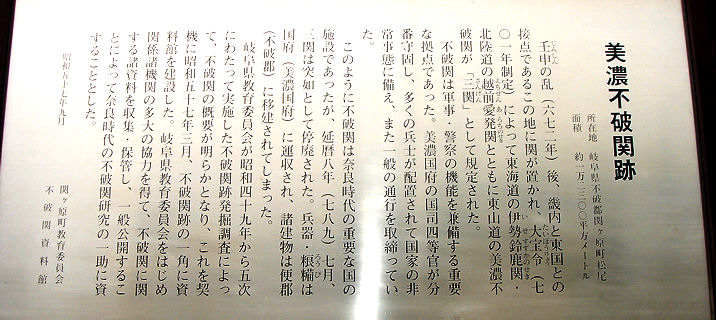 美濃不破関跡
所在地　岐阜県不破郡関ヶ原町松尾
面積　約一万二三〇〇平方メートル
壬申の乱（六七二年）後、畿内と東国との
接点であるこの地に関が置かれ、大宝令（七
〇一年制定）によって東海道の伊勢鈴鹿関・
北陸道の越前愛発関とともに東山道の美濃不
破関が「三関」として規定された。
不破関は軍事・警察の機能を兼備する重要
な拠点であった。美濃国府の国司四等官が分
番守固し、多くの兵士が配置されて国家の非
常事態に備え、また一般の通行を取締ってい
た。
このように不破関は奈良時代の重要な国の
施設であったが、延暦八年（七八九）七月、
三関は突如として停廃された。兵器・粮糒は
国府（美濃国府）に運収され、諸建物は便郡
（不破郡）に移建されてしまった。
岐阜県教育委員会が昭和四十九年から五次
にわたって実施した不破関跡発掘調査によっ
て、不破関の概要が明らかとなり、これを契
機に昭和五十七年三月、不破関跡の一角に資
料館を建設した。岐阜県教育委員会をはじめ
関係諸機関の多大の協力を得て、不破関に関
する諸資料を収集・保管し、一般公開するこ
とによって奈良時代の不破関研究の一助に資
することとした。
昭和五十七年九月
関ヶ原町教育委員会
不破関資料館